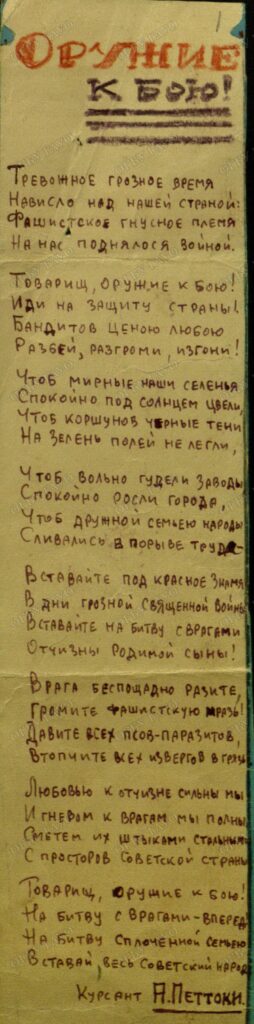 1
ОРУЖИЕ
К БОЮ!
ТРЕВОЖНОЕ ГРОЗНОЕ ВРЕМЯ
НАВИСЛО НАД НАШЕЙ СТРАНОЙ:
ФАШИСТСКОЕ ГНУСНОЕ ПЛЕМЯ
НА НАС ПОДНЯЛОСЯ ВОЙНОЙ.
ТОВАРИЩ, ОРУЖИЕ К БОЮ!
ИДИ НА ЗАЩИТУ СТРАНЫ!
БАНДИТОВ ЦЕНОЮ ЛЮБОЮ
РАЗБЕЙ, РАЗГРОМИ, ИЗГОНИ!
ЧТОБ МИРНЫЕ НАШИ СЕЛЕНЬЯ
СПОКОЙНО ПОД СОЛНЦЕМ ЦВЕЛИ,
ЧТОБ КОРШУНОВ ЧЕРНЫЕ ТЕНИ
НА ЗЕЛЕНЬ ПОЛЕЙ НЕ ЛЕГЛИ,
ЧТОБ ВОЛЬНО ГУДЕЛИ ЗАВОДЫ
СПОКОЙНО РОСЛИ ГОРОДА,
ЧТОБ ДРУЖНОЙ СЕМЬЕЮ НАРОДЫ
СЛИВАЛИСЬ В ПОРЫВЕ ТРУДА
ВСТАВАЙТЕ ПОД КРАСНОЕ ЗНАМЯ
В ДНИ ГРОЗНОЙ СВЯЩЕННОЙ ВОЙНЫ
ВСТАВАЙТЕ НА БИТВУ С ВРАГАМИ
ОТЧИЗНЫ РОДИМОЙ СЫНЫ!
ВРАГА БЕСПОЩАДНО РАЗИТЕ,
ГРОМИТЕ ФАШИСТСКУЮ МРАЗЬ!
ДАВИТЕ ВСЕХ ПСОВ-ПАРАЗИТОВ,
ВТОПЧИТЕ ВСЕХ ИЗВЕРГОВ В ГРЯЗЬ
ЛЮБОВЬЮ К ОТЧИЗНЕ СИЛЬНЫ МЫ
И ГНЕВОМ К ВРАГАМ МЫ ПОЛНЫ
СМЕТЕМ ИХ ШТЫКАМИ СТАЛЬНЫМИ
С ПРОСТОРОВ СОВЕТСКОЙ СТРАНЫ
ТОВАРИЩ, ОРУЖИЕ К БОЮ!
НА БИТВУ С ВРАГАМИ-ВПЕРЕД
НА БИТВУ СПЛОЧЕННОЙ СЕМЬЕЮ
ВСТАВАЙ, ВЕСЬ СОВЕТСКИЙ НАРОД
КУРСАНТ А.ПЕТТОКИ.